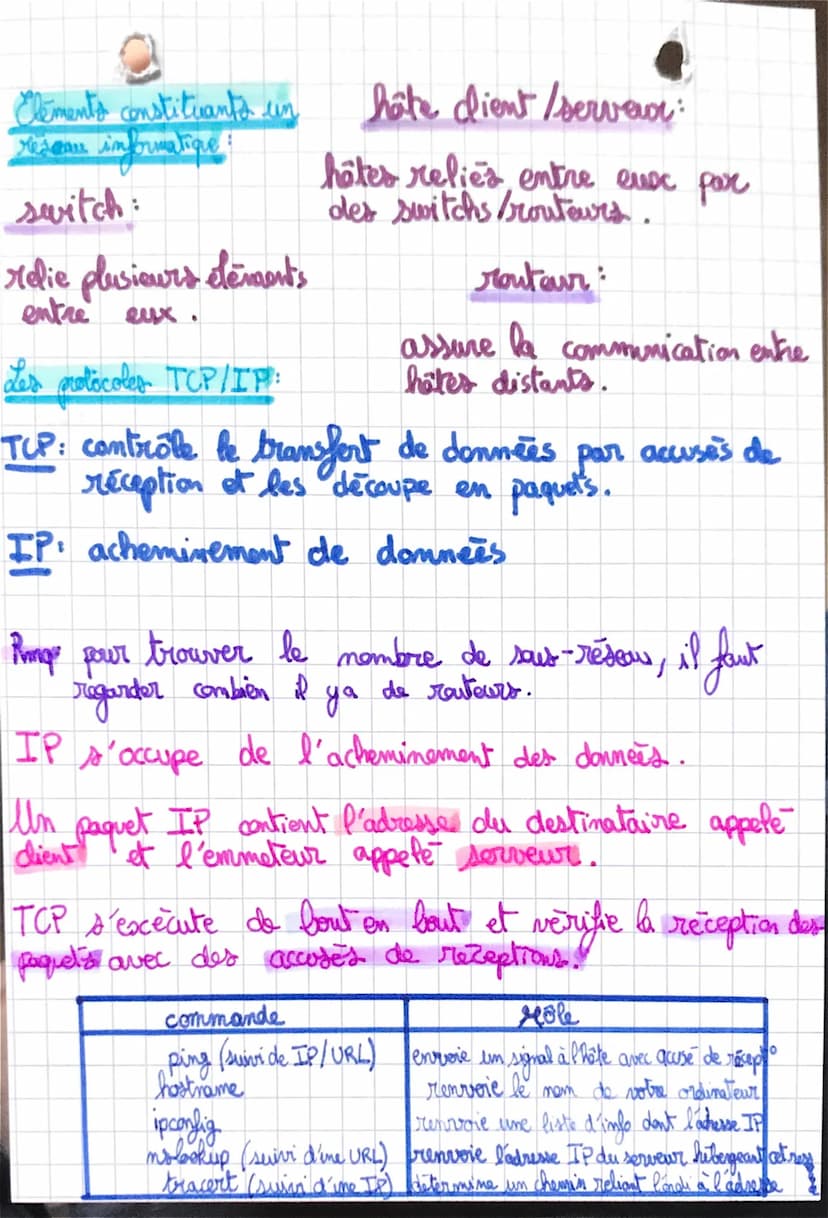 Eléments constituants un
réseau informatique:
hôte client/serveur:
hôtes reliés entre eux par
des switchs/routeurs.
switch:
relie plusieurs éléments
entre eux.
routeur:
assure la communication entre
hôtes distants.
Les protocoles TCP/IP:
TCP: contrôle le transfert de données par accusés de
réception et les découpe en paquets.
IP: acheminement de données
pour trouver le nombre de sous-réseau, il faut
regarder combien il y a de routeurs.
IP s'occupe de l'acheminement des données.
Un paquet IP contient l'adresse du destinataire appelé
client et l'emmeteur appelé serveur.
TCP s'exécute de bout en bout et vérifie la réception des
paquets avec des accusés de réceptions.
commande rôle
ping (suivi de IP/URL) envoie un signal à l'hôte avec accusé de récept°
hostname renvoie le nom de votre ordinateur
ipconfig renvoie une liste d'info dont l'adresse IP
nslookup (suivi d'une URL) renvoie l'adresse IP du serveur hébergeant cet
tracert (suivi d'une IP) détermine un chemin reliant l'ordi à l'adresse